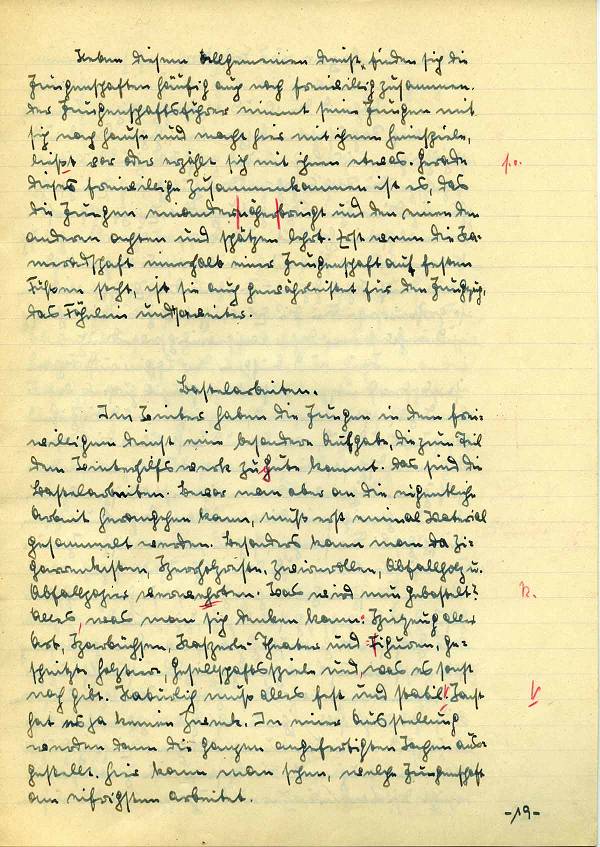 Neben diesem allgemeinen Dienst, finden sich die
Jungenschaften häufig auch noch freiwillig zusammen.
Der Jungenschaftsführer nimmt seine Jungen mit
sich nach Hause und macht hier mit ihnen Heimspiele,
liest vor oder erzählt sich mit ihnen etwas. Gerade
dieses freiwillige Zusammenkommen ist es, das
die Jungen einander näher bringt und den einen den
anderen achten und schätzen lehrt. Erst wenn die Ka-
meradschaft innerhalb einer Jungenschaft auf festen
Füßen steht, ist sie auch gewährleistet für den Jungzug,
das Fähnlein und so weiter.
Bastelarbeiten.
Im Winter haben die Jungen in dem frei-
willigen Dienst eine besondere Aufgabe, die zum Teil
dem Winterhilfswerk zu gute kommt. Das sind die
Bastelarbeiten. Bevor man aber an die eigentliche
Arbeit herangehen kann, muß erst einmal Material
gesammelt werden. Besonders kann man da Zi-
garrenkisten, Sperrholzreste, Zwirnrollen, Abfallholz u.
Abfallpapier verwerten. Was wird nun gebastelt?
Alles, was man sich denken kann: Spielzeug aller
Art, Sparbüchsen, Kasperle-Theater und Figuren, ge-
schnitzte Holztiere, Gesellschaftsspiele und, was es sonst
noch gibt. Natürlich muß alles fest und stabil Sonst
hat es ja keinen Zweck. In einer Ausstellung
werden dann die ganzen angefertigten Sachen aus-
gestellt. Hier kann man sehen, welche Jungenschaft
am eifrigsten arbeitet.
-19-